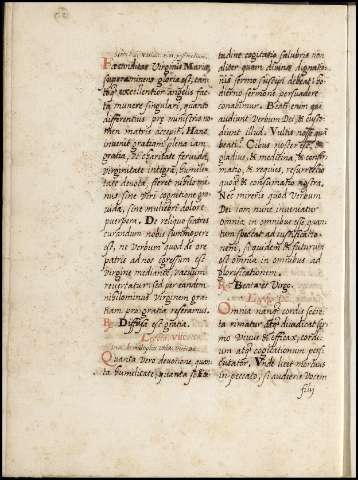 Fœcunditas Virginis Mariæ
supereminens gloria est, tam
excellentior angelis fac
ta munere singulari, quanto
differentius præ ministris no
men matris accepit. Hanc
invenit gratiam plena iam
gratia, ut charitate fervida,
virginitate integra, humilita
te devota, fieret nihilominus
sine viri cognitione gra
vida, sine muliebri dolore
puerpera. De reliquo fratres
curandum nobis summopere
est, ne Verbum quod de ore
patris ad nos egressum est
Virgine mediante, vacuum
revertatur: sed per eandem
nihilominus Virginem grati
am pro gratia referamus.
R. Diffusa est gratia.
Quanta vero devotione, quan
ta humilitate,
tudine cogitatio salubris non
aliter quam divinæ dignatio
nis sermo suscipi debeat: ho
dierno sermone persuadere
conabimur. Beati enim qui
audiunt Verbum Dei, et custo
diunt illud. Vultis nosse quam
beati? Cibus noster est, et
gladius, et medicina, et confir
matio, et requies, resurrectio
quoque, et consumatio nostra.
Nec mireris quod Verbum
Dei iam nunc inveniatur
omnia in omnibus esse quan
tum spectat ad iustificatio
nem, siquidem et futurum
est omnia in omnibus ad
glorificationem.
R. Beata es Virgo.
Omnia nanque cordis secre
ta rimatur atque diiudicat ser
mo vivus et efficax, cordi
um atque cogitationum perscru
tator. Unde licet mortuus
in peccato, si audieris Vocem
filij